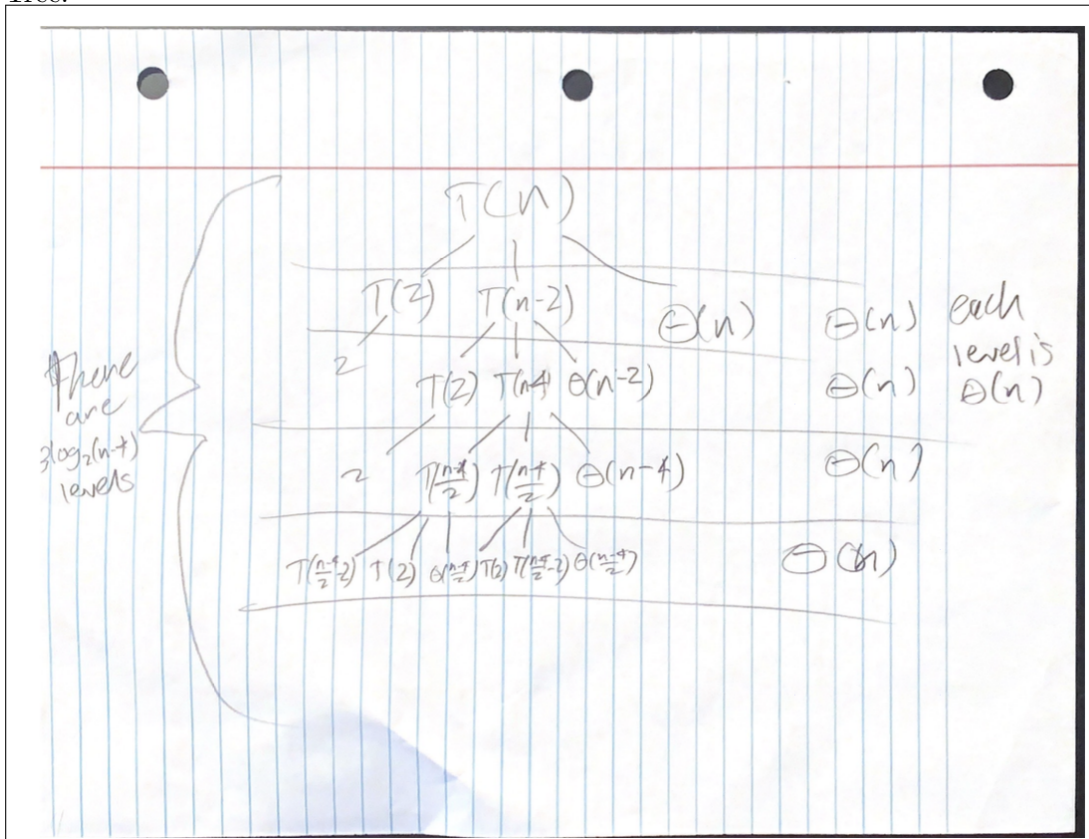 T(n)
T(2) T(n-2) Θ(n) Θ(n) each
level is
Θ(n)
2 T(2) T(n-4) Θ(n-2) Θ(n)
There
are
3log₂(n-4)
levels
2 T(n-4/2) T(n-4/2) Θ(n-4) Θ(n)
T(n-4/2-2) T(2) Θ(n-4/2) T(2) T(n-4/2-2) Θ(n-4/2) Θ(n)